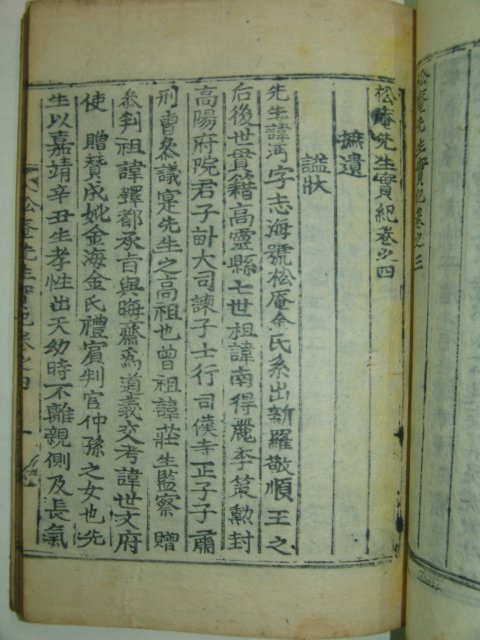 松庵先生實紀卷之三
松庵先生實紀卷之四
摭遺
謚狀
先生諱沔字志海號松庵金氏系出新羅敬順王之
后後世貫籍高靈縣七世祖諱南得麗季策勳封
高陽府院君子畒大司諫子士行司僕寺正子子肅
刑曹叅議寔先生之高祖也曾祖諱莊生監察 贈
叅判祖諱鐸都承旨與晦齋爲道義交考諱世文府
使 贈賛成妣金海金氏禮賓判官仲孫之女也先
生以嘉靖辛丑生孝性出天幼時不離親側及長氣
松庵先生實紀卷之四 一